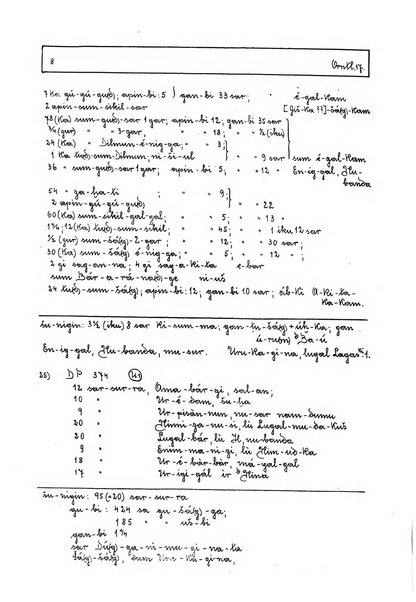 8 Orntl. 17.
7 Ka gú-gú-gub; apin-bi: 5 } gan-bi 33 sar; " é-gal-kam
2 apin-sum-sikil-sar [giš-ka ??]-šá(g)-kam
78(Ka) sum-gub-sar 1 gar; apin-bi 12; gan-bi 35 sar
(gur) " " 3-gar, " " 18; " ½(iku)
24(Ka) " Dilmun-é-nig-ga; " 3;
1 Ka sum-Dilmun; ni-si-ul " " 9 sar sum é-gal-kam
36 " sum-gub-sar 1 gar; apin-bi 5, " " 12 " En-ig-gal, nu-banda
54 " za-ha-ti ; " " 9;
2 apin-gú-gú-gub " " 22
60(Ka) sum-sikil-gal-gal; " " 5; " " 13 "
12(Ka) sum-sikil; " " 45; " " 1 iku 12 sar
½(gur) sum-šá(g)-2-gar; " " 12; " " 30 sar;
30(Ka) sum-šá(g) é-nig-ga; " " 5; " " 12 " ;
2 gi sag-an-na; 4 gi sag-a-ki-ta e-bar
sum Bár-a-rá-nab-ge ni-us
24 -sum-šá(g); apin-bi: 12; gan-bi 10 sar; áb-ki A-ki-ta-ka-kam.
šu-nigin: 3½ (iku) 8 sar ki-sum-ma; gan-šá(g) + úh-ka; gan
ú-rum) Ba-ú
En-ig-gal, nu-banda, mu-sur. Uru-ka-gi-na, lugal Lagaš. 1.
25) DP 374 (U1)
12 sar-sur-ra, Ama-bár-gi, sal-an;
10 " Ur-é-dam, šu-ha
9 " Ur-pisàn-mun, nu-sar nam-dumu
20 " Nimi-za-nu-ni, lù Lugal-mu-da-kuš
20 " Lugal-bár, lù Il, nu-banda
9 " Enim-ma-ni-gi, lù Nim-ud-ka
18 " Ur-é-bár-bár, má-gal-gal
17 " Ur-igi-gál ir Nina
šu-nigin: 95(+20) sar-sur-ra
gu-bi: 424 sa gu-šá(g)-ga;
185 " " uš-bi
gan-bi 1¼
sar Dú(g)-ga-ni-mu-gi-na-ta
šá(g)-šá(g), dam Uru-ka-gi-na,